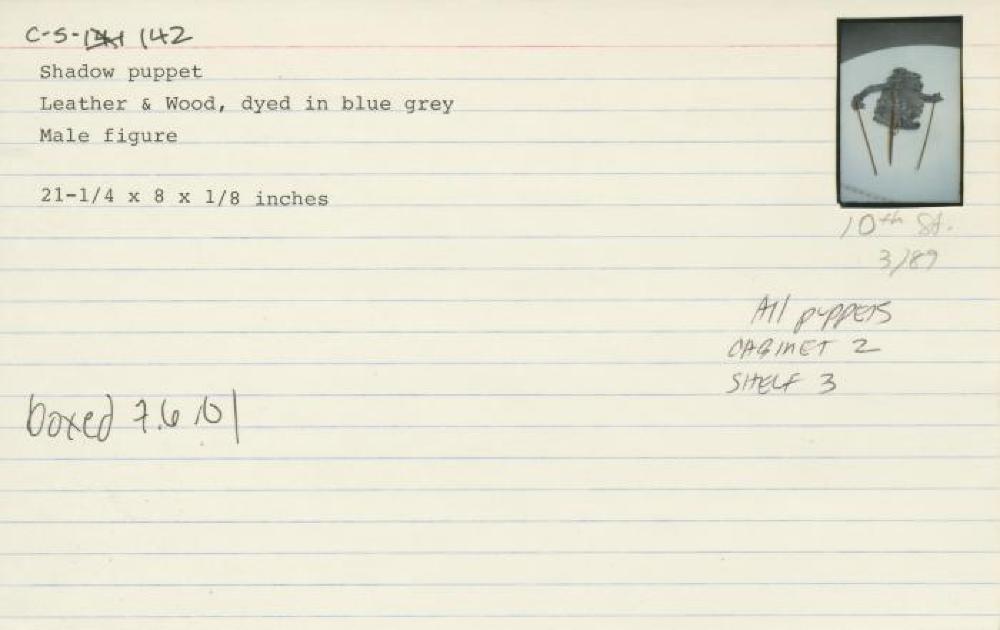 C-S-141 142
Shadow puppet
Leather & Wood, dyed in blue grey
Male figure
21-1/4 x 8 x 1/8 inches
10th St.
3/89
All puppets
CABINET 2
SHELF 3
boxed 7.6.01